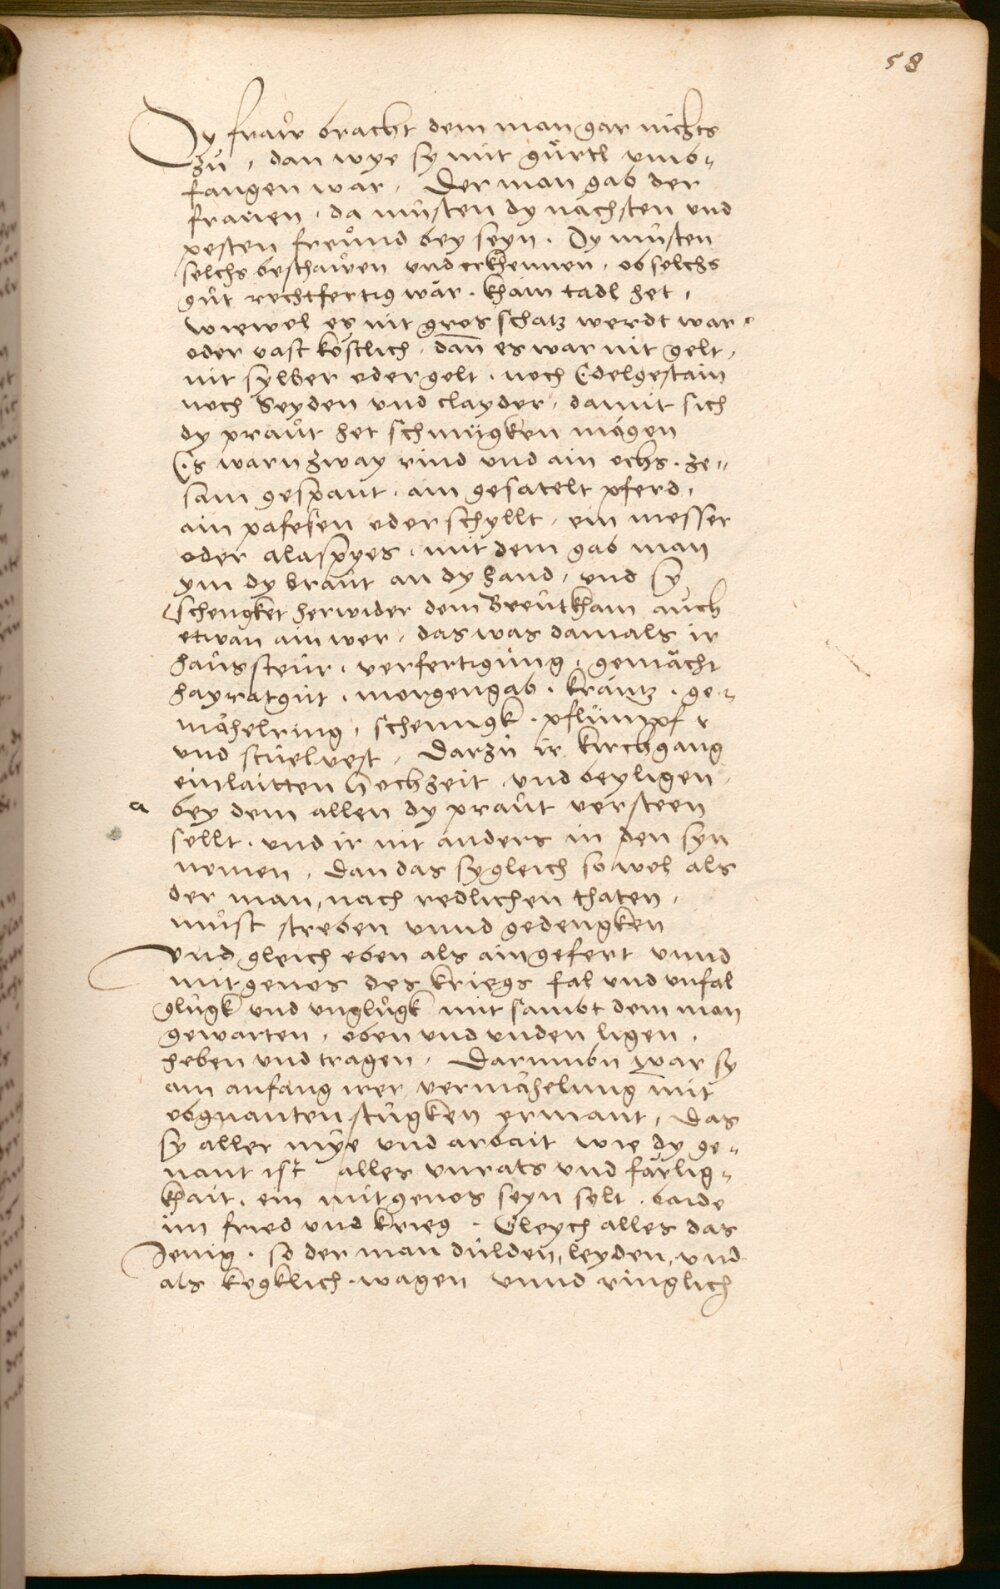 58
Dy fraẃ bracht dem man gar nichts
zů, dan wye sy mit gürtl umb=
fangen war, Der man gab der
frauen, da můsten dy nächsten und
pesten freůnd bey seyn. Dy můsten
solchs beschaůen und erkhennen, ob solchs
gůt rechtfertig wär. khain tadl het,
wiewol es nit gros schatz werdt war,
oder vast köstlich. dan̄ es war nit gelt,
nit sylber oder golt. noch Edelgestain
noch Seyden und clayder, damit sich
dy praůt het schmügken mögen
Es warn zway rind und ain ochs. ze=
sam gespant. ain gesatelt pferd,
ain pafesen oder schyllt, ein messer
oder alaspyes, mit dem gab man
ym dy braůt an dy hand, und sy
schengket herwider dem Breůtkham auch
etwan ain wer, das was damals ir
haůssteůr, verfertigůng, gemächt
hayratgůt, morgengab. kräntz. ge=
mähelring, schenngk. pflümpf
und stůelvest, Darzů ir kirchgang
einlaitten Hochzeit, und beyligen,
a bey dem allen dy praůt versteen
sollt. und ir nit anders in den syn
nemen, Dan das sy gleich so wol als
der man, nach redlichen thaten,
můst streben unnd gedengken
Und gleich eben als ain gefert unnd
mitgenos des kriegs fal und unfal
glůgk und unglůgk mit sambt dem man
gewarten, oben und unden ligen,
heben und tragen, Darumbn war sy
am anfang irer vermähelung mit
obgnanten stůgken ermant, Das
sy aller můe und arbait wie dy ge=
nant ist alles unrats und färlig=
khait, ein mitgenos seyn solt. baide
im fried und krieg. Gleych alles das
Jenig. so der man důlden, leyden, und
als kegklich. wagen unnd ringlich